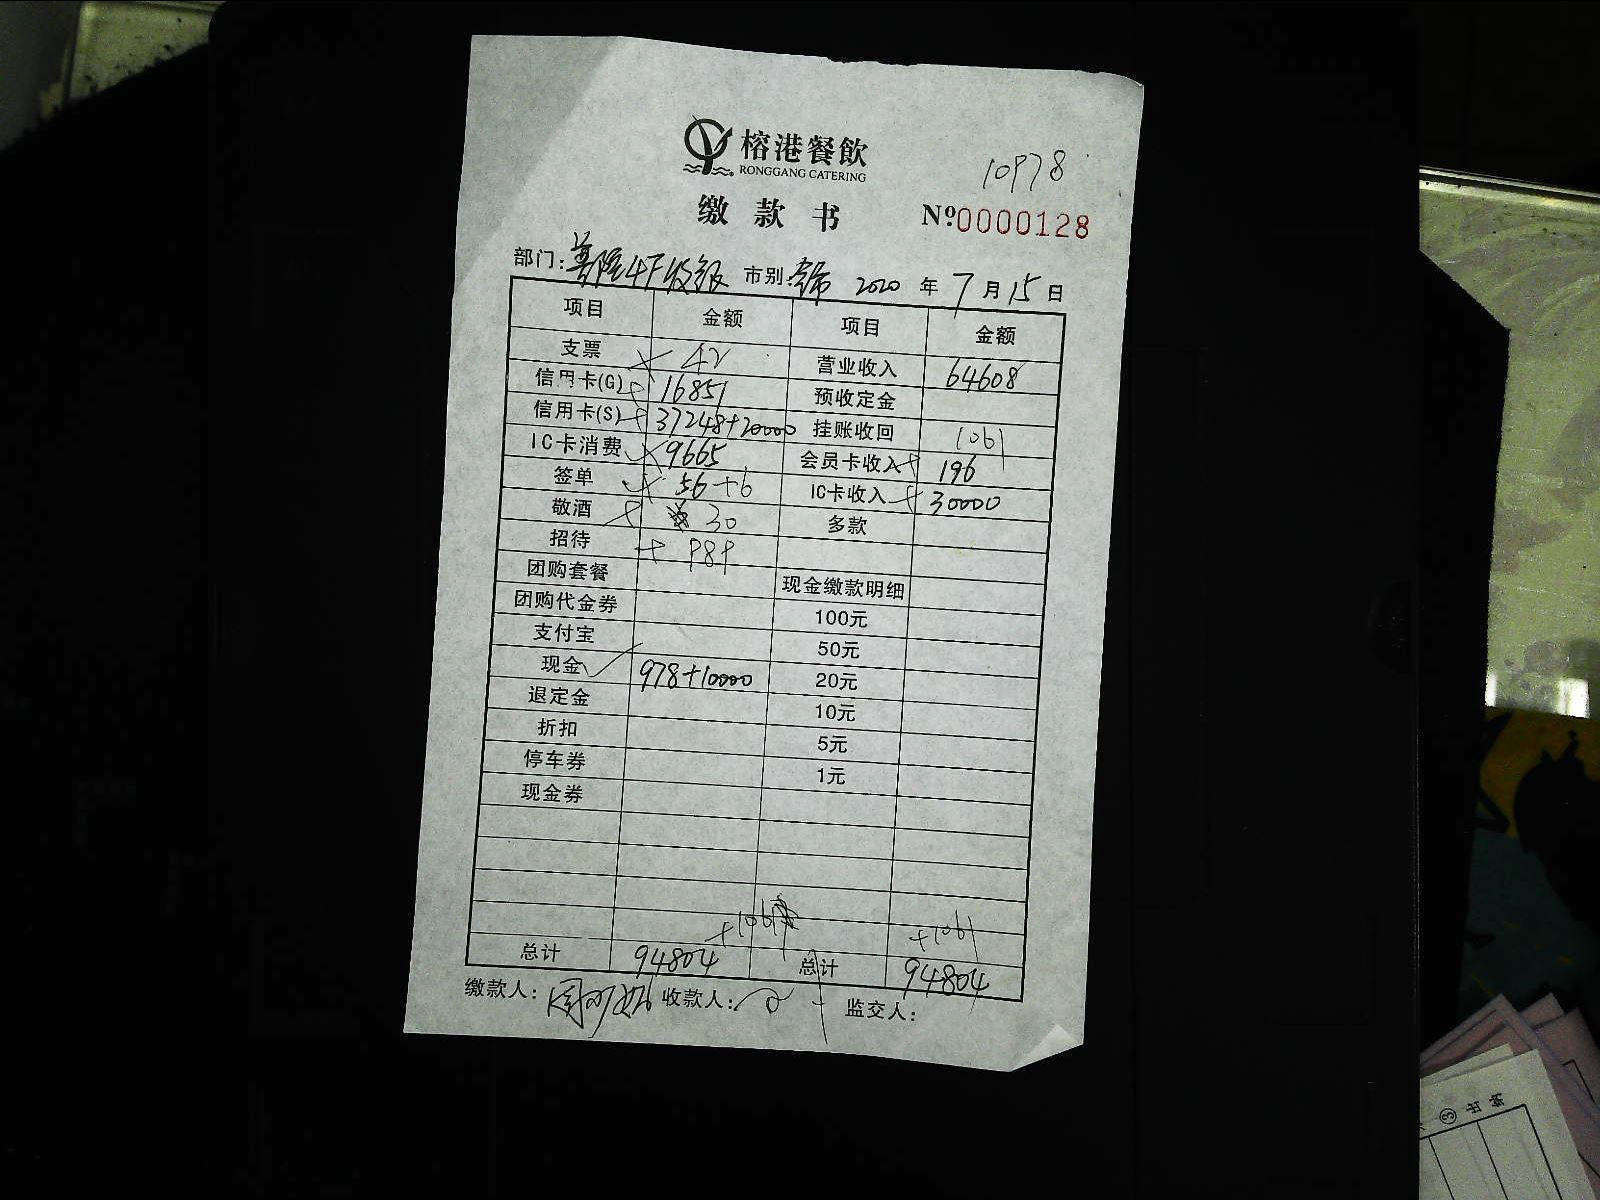 榕港餐飲
RONGGANG CATERING
10978
缴款书 №0000128
部门: 4F 市别: 2020 年 7 月 15 日
项目 金额 项目 金额
支票 42 营业收入 64608
信用卡(G) 16851 预收定金
信用卡(S) 37248+20000 挂账收回 1061
IC卡消费 9665 会员卡收入 196
签单 56+6 IC卡收入 30000
敬酒 30 多款
招待 989
团购套餐 现金缴款明细
团购代金券 100元
支付宝 50元
现金 978+10000 20元
退定金 10元
折扣 5元
停车券 1元
现金券
+1061 +1061
总计 94804 总计 94804
缴款人: 收款人: 监交人:
③